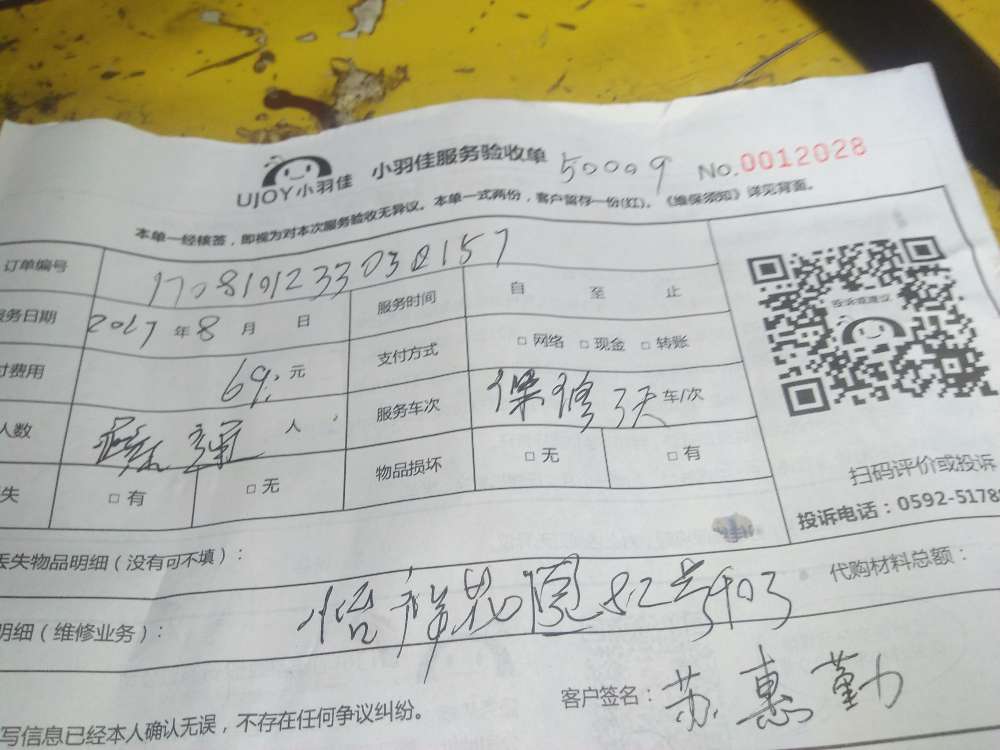 UJOY小羽佳 小羽佳服务验收单 50009 No.0012028
本单一经核签，即视为对本次服务验收无异议。本单一式两份，客户留存一份(红)。《维保须知》详见背面。
订单编号 1708101233030157
务日期 2017 年 8 月 日 服务时间 自 至 止
费用 69: 元 支付方式 □ 网络 □ 现金 □ 转账
人数 人 服务车次 保修3天 车/次
失 □ 有 □ 无 物品损坏 □ 无 □ 有
投诉或建议
扫码评价或投诉
投诉电话：0592-5178
丢失物品明细（没有可不填）：
代购材料总额：
明细（维修业务）： 怡祥花园82号403
写信息已经本人确认无误，不存在任何争议纠纷。
客户签名：苏惠勤